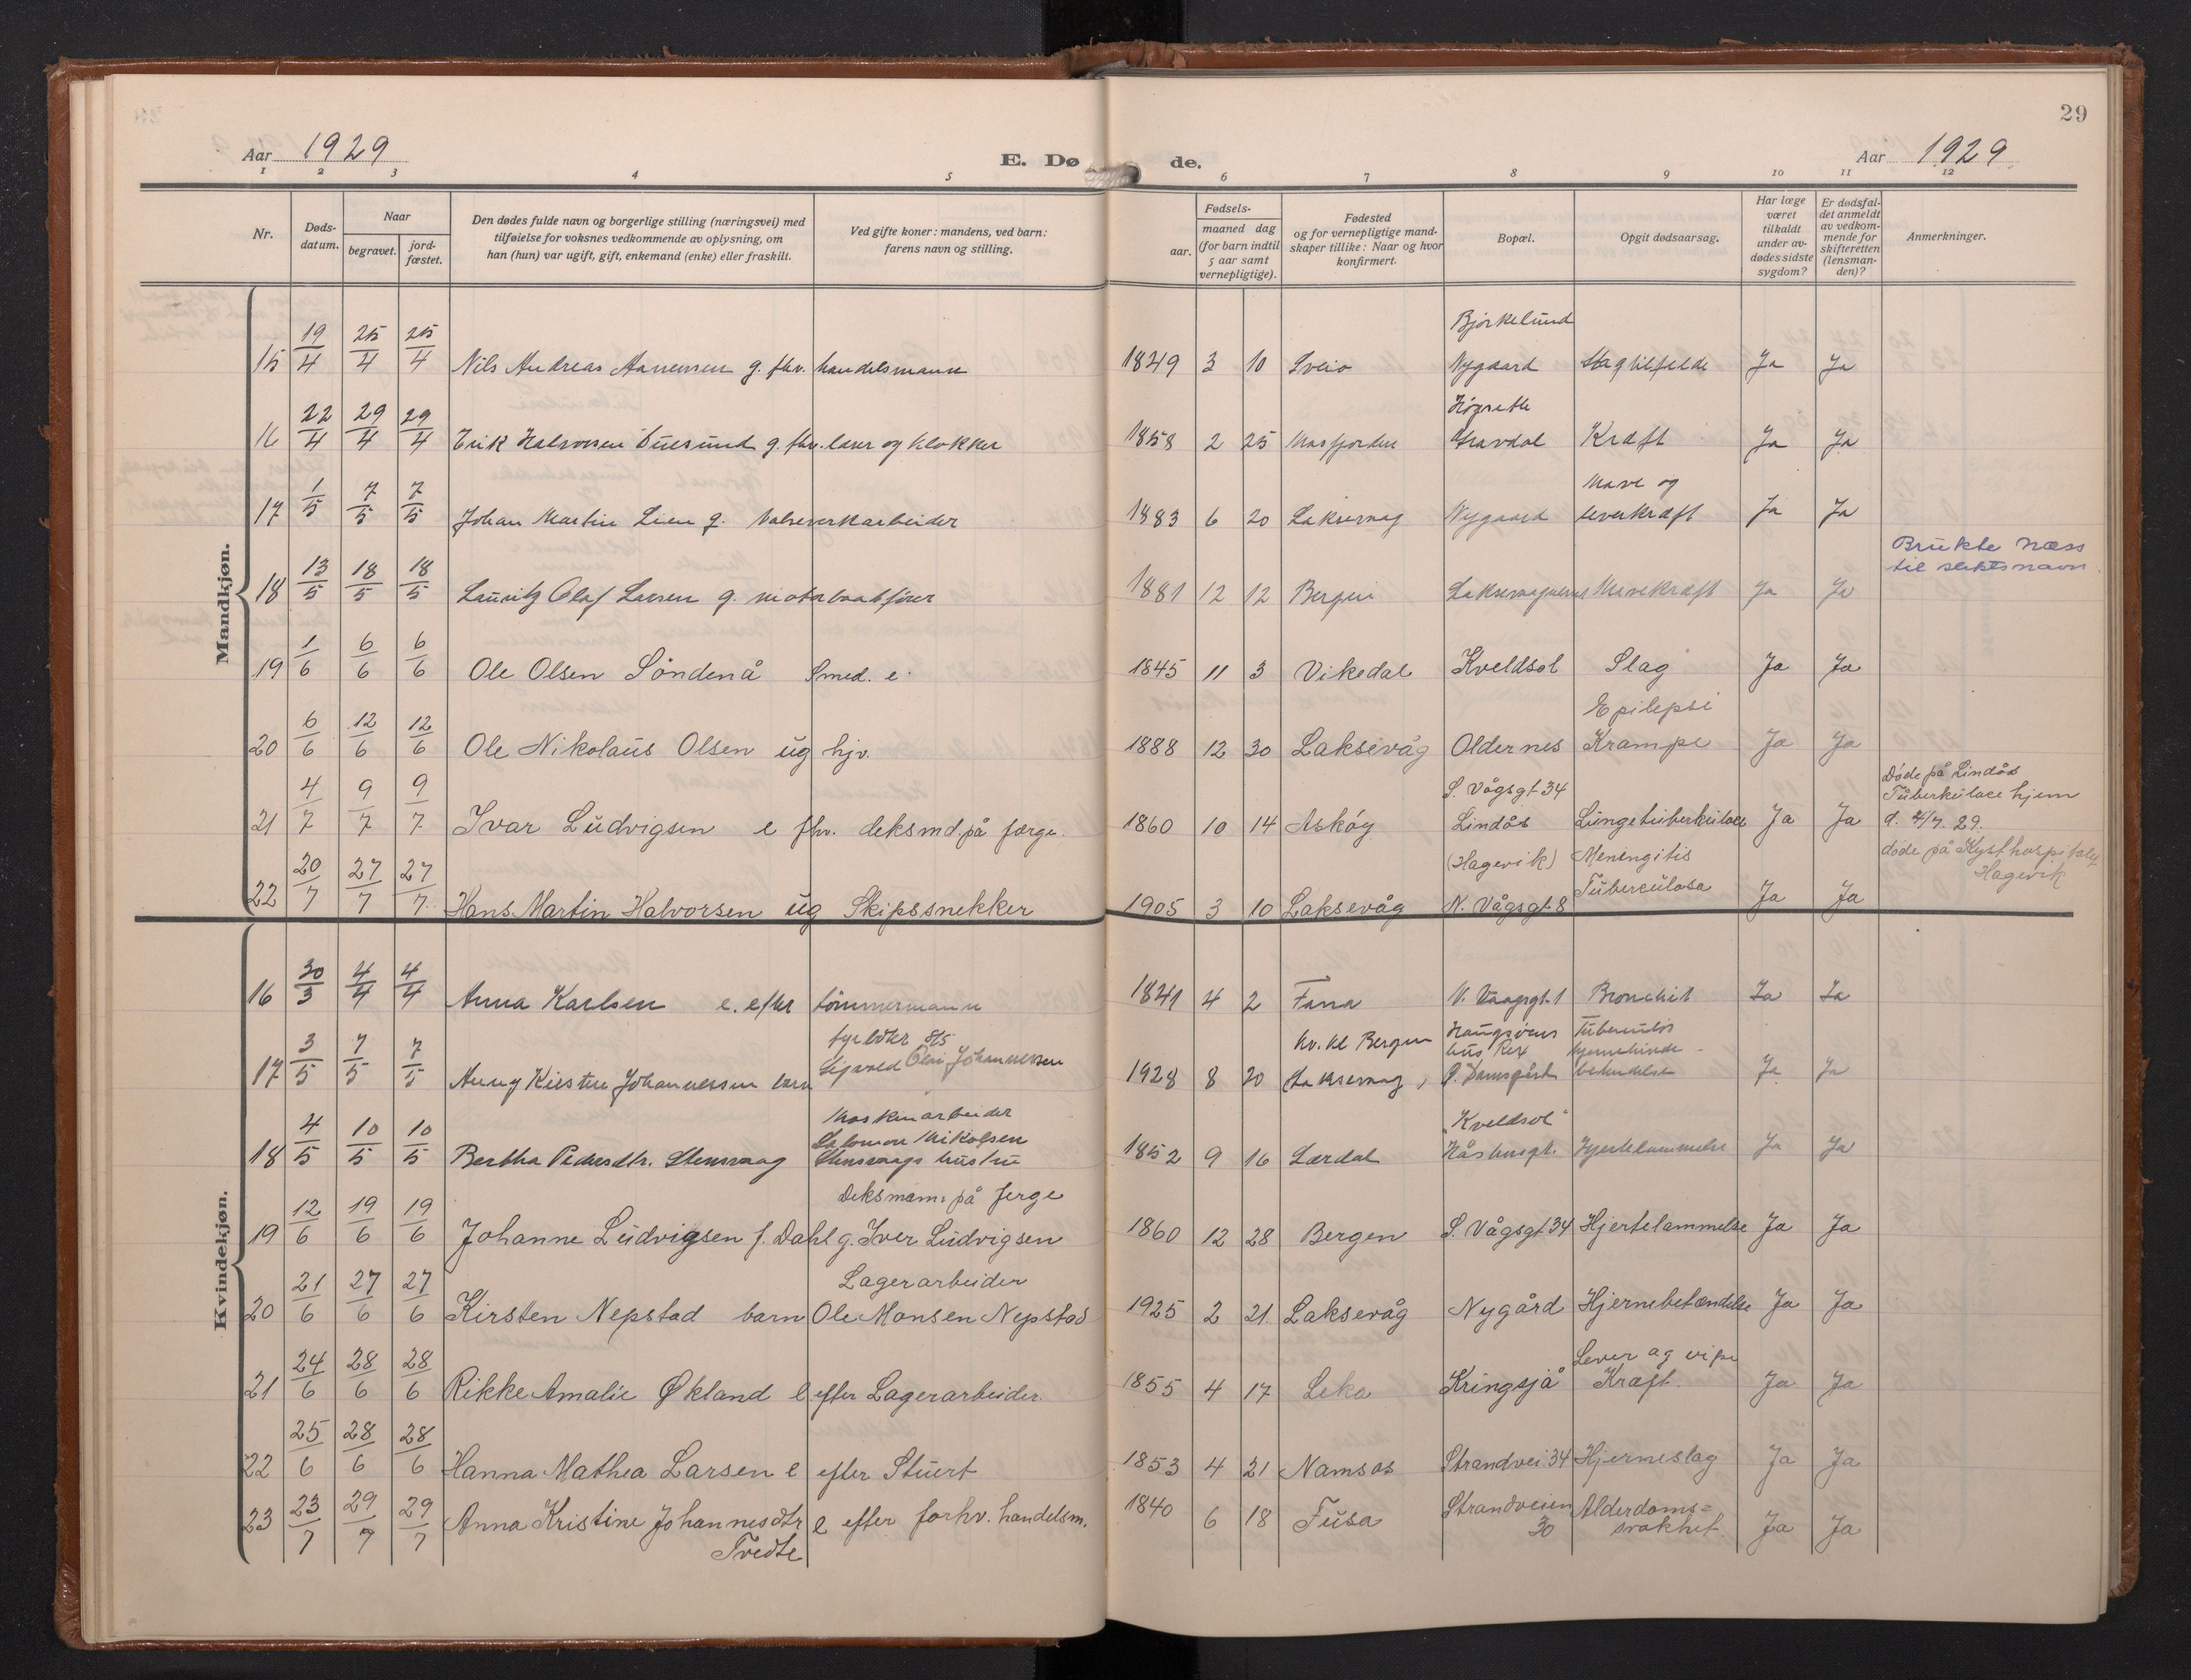 29
Aar 1929 E. Dø de. Aar 1929.
1 2 3 4 5 6 7 8 9 10 11 12
Nr. Døds-datum. Naar begravet. jord-fæstet. Den dødes fulde navn og borgerlige stilling (næringsvei) med tilføielse for voksnes vedkommende av oplysning, om han (hun) var ugift, gift, enkemand (enke) eller fraskilt. Ved gifte koner: mandens, ved barn: farens navn og stilling. Fødsels- aar. maaned dag (for barn indtil 5 aar samt vernepligtige). Fødested og for vernepligtige mandskaper tillike: Naar og hvor konfirmert. Bopæl. Opgit dødsaarsag. Har læge været tilkaldt under avdødes sidste sygdom? Er dødsfaldet anmeldt av vedkommende for skifteretten (lensmanden)? Anmerkninger.
Mandkjøn.
15 19/4 25/4 25/4 Nils Andreas Aanensen g. fhv. handelsmann 1849 3 10 Sveio Bjørkelund Nygaard Slagtilfelde Ja Ja
16 22/4 29/4 29/4 Erik Halvorsen g. fhv. lærer og klokker 1858 2 25 Masfjorden Gravdal Kræft Ja Ja
17 1/5 7/5 7/5 Johan Martin Lien g. Valseverkarbeider 1883 6 20 Laksevaag Nygaard Mave og leverkræft Ja Ja
18 13/5 18/5 18/5 Lauritz Olaf Larsen g. motorbaatfører 1881 12 12 Bergen Mavekræft Ja Ja Brukte Næss til slektsnavn.
19 1/6 6/6 6/6 Ole Olsen Söndenå Smed. e. 1845 11 3 Vikedal Kveldsol Slag Ja Ja
20 6/6 12/6 12/6 Ole Nikolaus Olsen ug hjv. 1888 12 30 Laksevåg Oldernes Epilepsi Krampe Ja Ja
21 4/7 9/7 9/7 Ivar Ludvigsen e fhv. deksmd. på færge. 1860 10 14 Askøy S. Vågsgt 34 Lindås Lungetuberkulose Ja Ja Døde på Lindås Tuberkulose hjem d. 4/7. 29.
22 20/7 27/7 27/7 Hans Martin Halvorsen ug Skipssnekker 1905 3 10 Laksevåg (Hagevik) N. Vågsgt. 8 Menengitis Tuberculosa Ja Ja døde på Kysthospitalet Hagevik
Kvindekjøn.
16 30/3 4/4 4/4 Anna Karlsen e. efter tømmermann 1841 4 2 Fana V. Vaagsgt. 1 Bronchit Ja Ja
17 3/5 7/5 7/5 Anny Kirsten Johannessen barn fyrbøter Sigvald Olai Johannessen 1928 8 20 Kv. kl Bergen Laksevaag, Haugsvens hus Rex P. Damsgård Tuberculøs hjernehinde betendelse Ja Ja
18 4/5 10/5 10/5 Bertha Pedersdtr. Stensvaag Maskinarbeider Salomon Mikalsen Stensvaags hustru 1852 9 16 Lærdal "Kveldsol" Håsteinsgt. Hjertelammelse Ja Ja
19 12/6 19/6 19/6 Johanne Ludvigsen f. Dahl g. Deksmann på ferge Iver Ludvigsen 1860 12 28 Bergen S. Vågsgt. 34 Hjertelammelse Ja Ja
20 21/6 27/6 27/6 Kirsten Nepstad barn Lagerarbeider Ole Monsen Nepstad 1925 2 21. Laksevåg Nygård Hjernebetændelse Ja Ja
21 24/6 28/6 28/6 Rikke Amalie Økland e efter Lagerarbeider. 1855 4 17 Leka Kringsjå Lever og Kræft. Ja Ja
22 25/6 28/6 28/6 Hanna Mathea Larsen e efter Stuert 1853 4 21 Namsos Strandvei 34 Hjerneslag Ja Ja
23 23/7 29/7 29/7 Anna Kristine Johannesdtr Tvedte e efter forhv. handelsm. 1840 6 18 Fusa Strandveien 30 Alderdoms=svakhet. Ja Ja